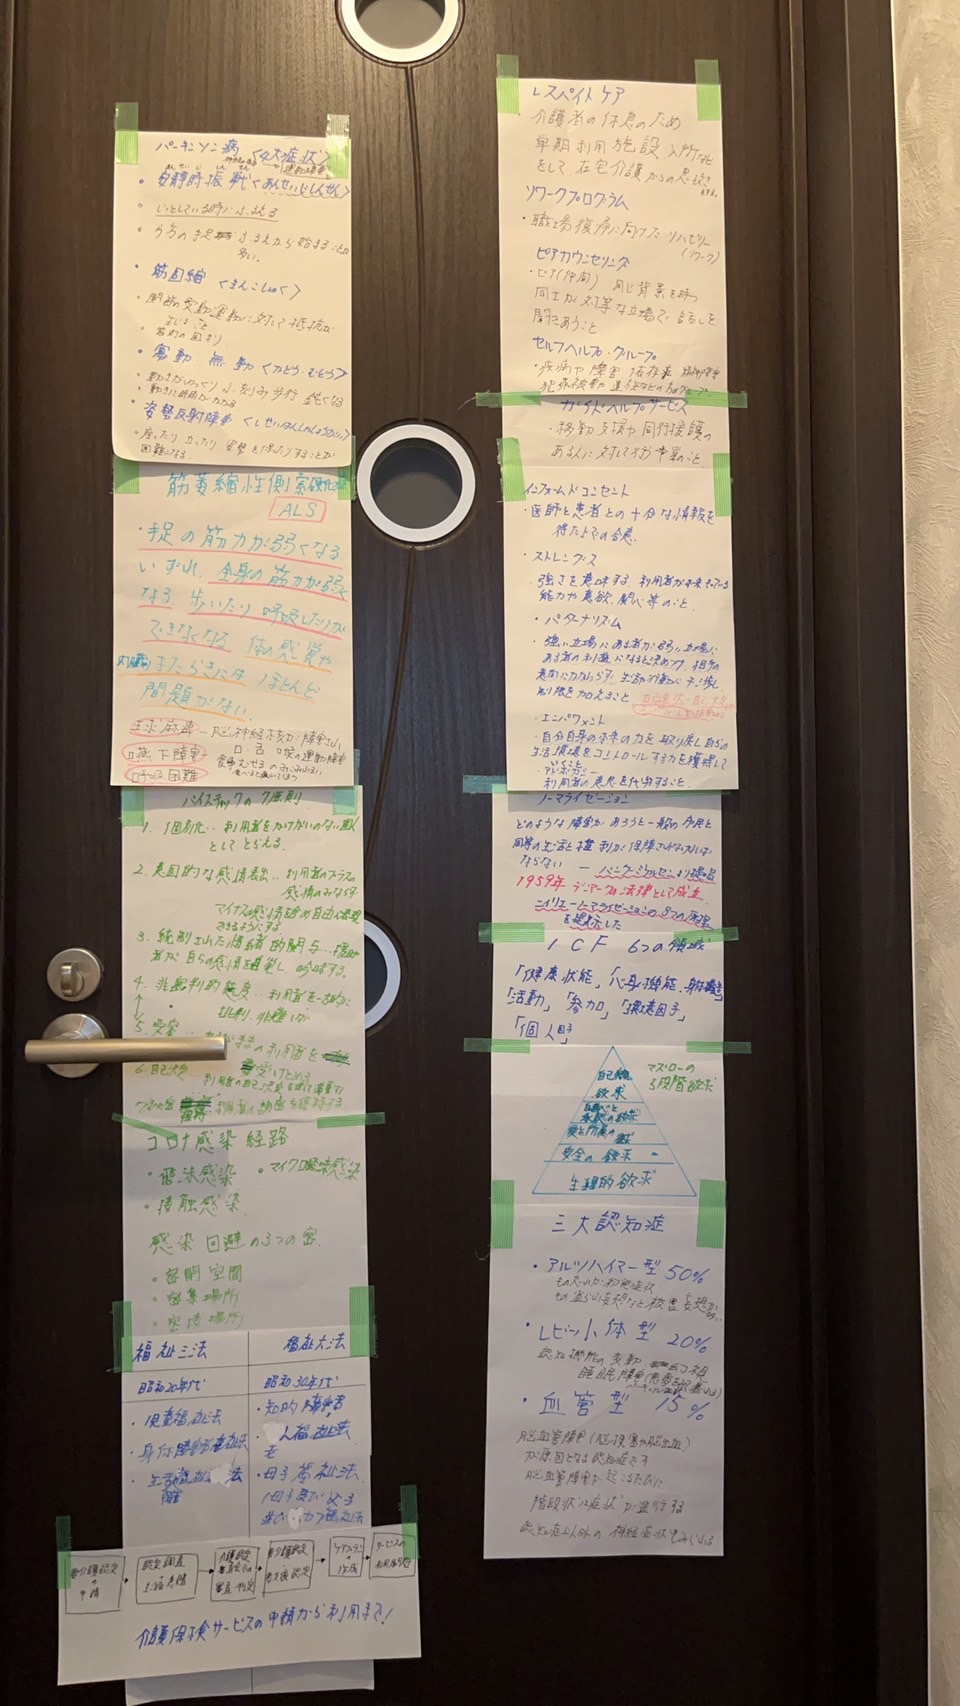 パーキンソン病 <4大症状>
運動障害
・安静時振戦<あんせいじしんせん>
・じっとしている時にふるえる
・片方の手足 ふるえから始まることが
多い。
・筋固縮 <きんこしゅく>
・関節の受動運動に対して抵抗が
・筋肉の固まり
・寡動 無動<かどう むどう>
・動きがゆっくり 小刻み歩行 鈍くなる
・動きに時間がかかる
・姿勢反射障害
・座ったり 立ったり 姿勢を保ったりすることが
困難になる。
筋萎縮性側索硬化症
ALS
・手足の筋力が弱くなる
いずれ、全身の筋力が弱く
なる。歩いたり 呼吸したりが
できなくなる 体の感覚や
内臓のはたらきには ほとんど
問題がない。
球麻痺 – 脳神経核が障害され
嚥下障害 口・舌・喉の運動障害
呼吸困難
バイステックの7原則
1. 個別化‥利用者をかけがいのない個人
としてとらえる。
2. 意図的な感情表出‥利用者のプラスの
感情のみならず
マイナスの感情も自由に表現
できるようにする。
3. 統制された情緒的関与‥援助
者が自らの感情を自覚し、吟味する。
4. 非審判的態度‥利用者を一方的に
批判、非難しない
5. 受容
の利用者を
受けとめる
6. 自己決定
利用者の自己決定を促して尊重する
利用者の秘密を保持する
コロナ感染経路
・飛沫感染 ・マイクロ飛沫感染
・接触感染
感染回避の3つの密
・密閉空間
・密集場所
・密接場所
福祉三法 福祉六法
昭和20年代 昭和30年代
・児童福祉法 ・知的障害者
・身体障害者福祉法 人福祉法
・生活 法 ・母子福祉法
(母子及び父子
並びに 福祉法
要介護認定の申請
認定調査
主治医意見書
介護認定審査会での審査・判定
要介護認定
ケアプランの作成
サービスの利用
介護保険サービスの申請から利用まで!
レスペイトケア
・介護者の休息のため
早期利用施設 入所など
をして 在宅介護からの息抜き
する。
リワークプログラム
・職場復帰に向けたリハビリ
(リワーク)
ピアカウンセリング
・ピア(仲間) 同じ背景を持つ
同士が対等な立場で話しを
聞きあうこと
セルフヘルプ・グループ
・疾病や障害 依存症
ガイドヘルプサービス
・移動支援や同行援護の
ある人に対して行う事業のこと
インフォームドコンセント
・医師と患者との十分な情報を
得た上での合意
・ストレングス
強さを意味する。利用者が本来もっている
能力や意欲、関心等のこと。
・パターナリズム
・強い立場にある者が弱い立場に
ある者の利益になると決めつけ 相手の
意向にかかわらず、生活や行動に干渉し
制限を加えること
・エンパワメント
・自分自身の本来の力を取り戻し自らの
生活環境をコントロールする力を獲得して
いくこと
・アドボカシー
利用者の意思を代弁すること
ノーマライゼーション
どのような障害があろうと一般の市民と
同等の生活と権利が保障されなければ
ならない — バンク・ミケルセンより提唱
1959年 デンマークの法律として成立
ニイリエ–ノーマライゼーションの8つの原理
を提示した
ICF 6つの領域
「健康状態」「心身機能・身体構造」
「活動」「参加」「環境因子」
「個人因子」
マズローの
5段階欲求
自己実現
欲求
自尊心と
承認の欲求
愛と所属の
欲求
安全の欲求
生理的欲求
三大認知症
・アルツハイマー型 50%
もの忘れが初発症状
もの盗られ妄想など被害妄想が多い
・レビー小体型 20%
認知機能の変動 幻視
睡眠障害
・血管型 15%
脳血管障害(脳梗塞や脳出血)
が原因となる認知症です
脳血管障害が起こるたびに
階段状に症状が進行する
認知症以外の神経症状もみられる